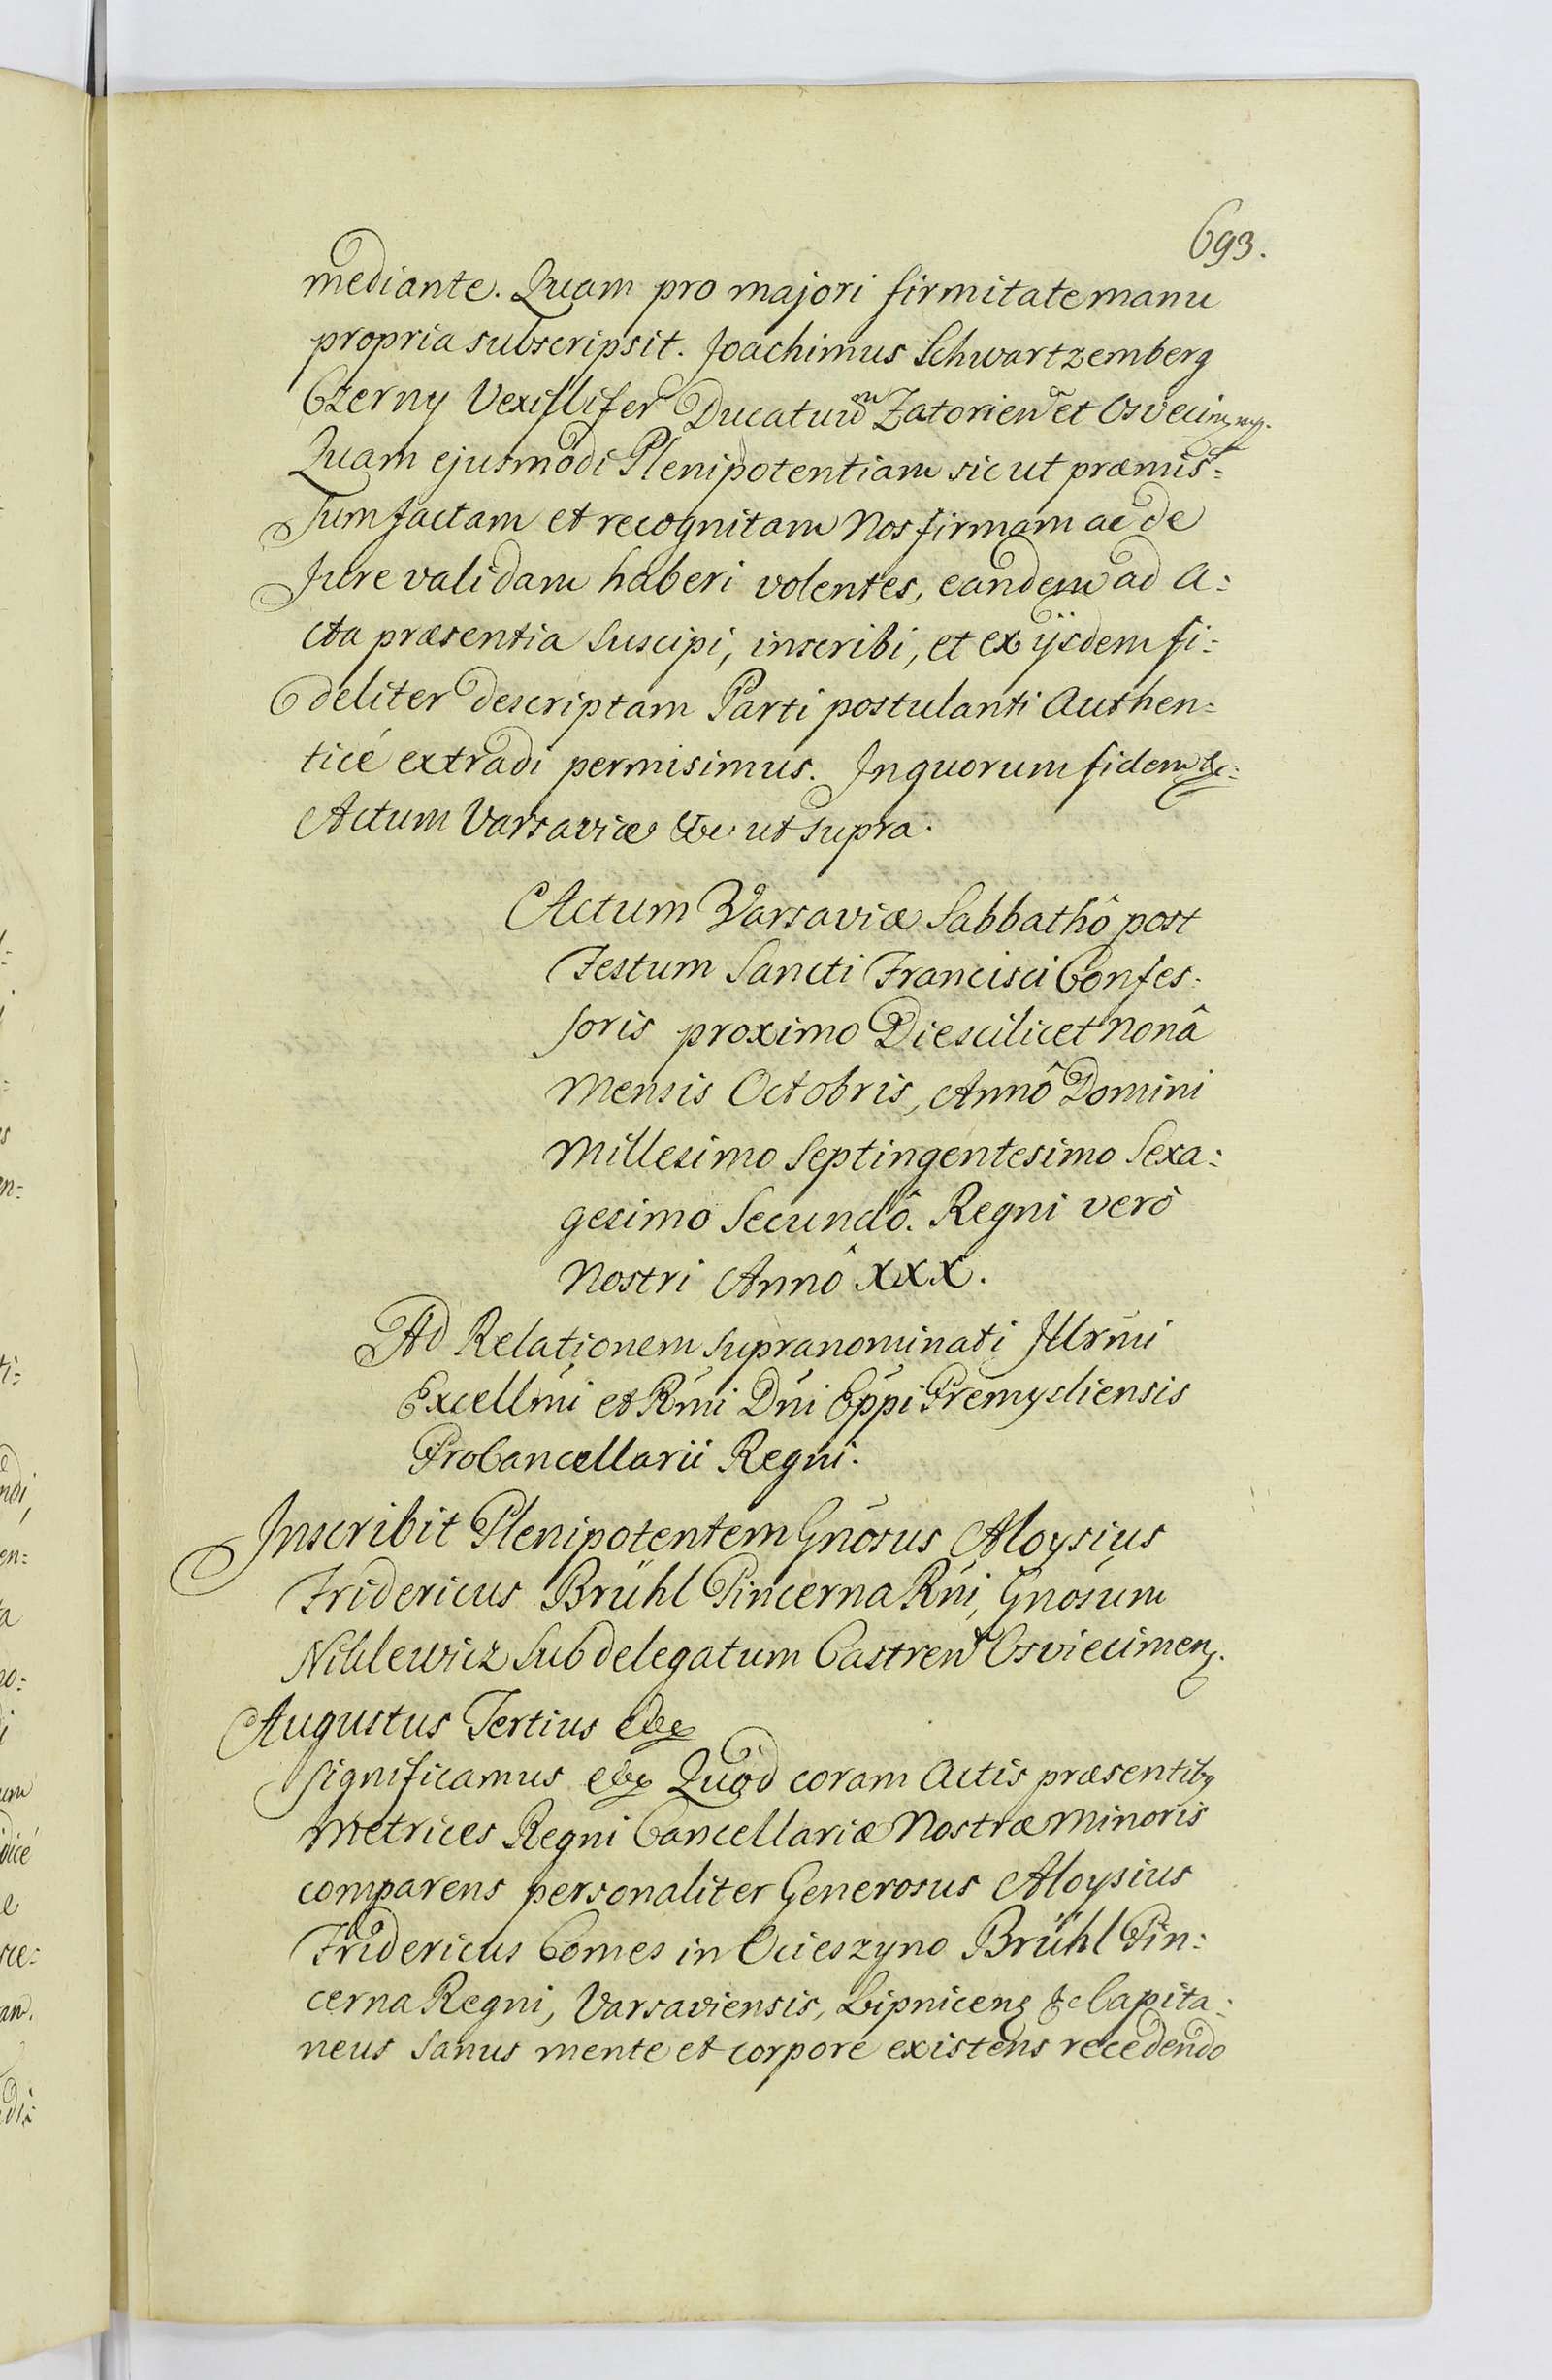 693.
mediante. Quam pro majori firmitate manu
propria subscripsit. Joachimus Schwartzemberg
Czerny Vexillifer Ducatuū Zatorien̄ et Osvecimen̄.
Quam ejusmodi Plenipotentiam sicut præmis=
sum factam et recognitam Nos firmam ac de
Jure validam haberi volentes, eandem ad A=
cta præsentia suscipi, inscribi, et ex ijsdem fi=
deliter descriptam Parti postulanti Authen=
ticé extradi permisimus. In quorum fidem &c:
Actum Varsaviæ &c. ut supra.
Actum Varsaviæ Sabbathô post
Festum Sancti Francisci Confes=
soris proximo Die scilicet Nonâ
Mensis Octobris, Annô Domini
Millesimo Septingentesimo Sexa=
gesimo Secundô. Regni verò
Nostri Annô XXX.
Ad Relationem supranominati Illrm̄i
Excellm̄i et Rm̄i Dn̄i Eppi Premysliensis
ProCancellarii Regni.
Inscribit Plenipotentem Gnōsus Aloysius
Fridericus Brühl Pincerna Rn̄i, Gnōsum
Subdelegatum Castren̄ Osviecimen.
Augustus Tertius &c
Significamus &c Quòd coram Actis præsentibq
Metrices Regni Cancellariæ Nostræ Minoris
comparens personaliter Generosus Aloysius
Fridericus Comes in Ocieszyno Brühl Pin=
cerna Regni, Varsaviensis, Lipnicen &c Capita=
neus sanus mente et corpore existens recedendo